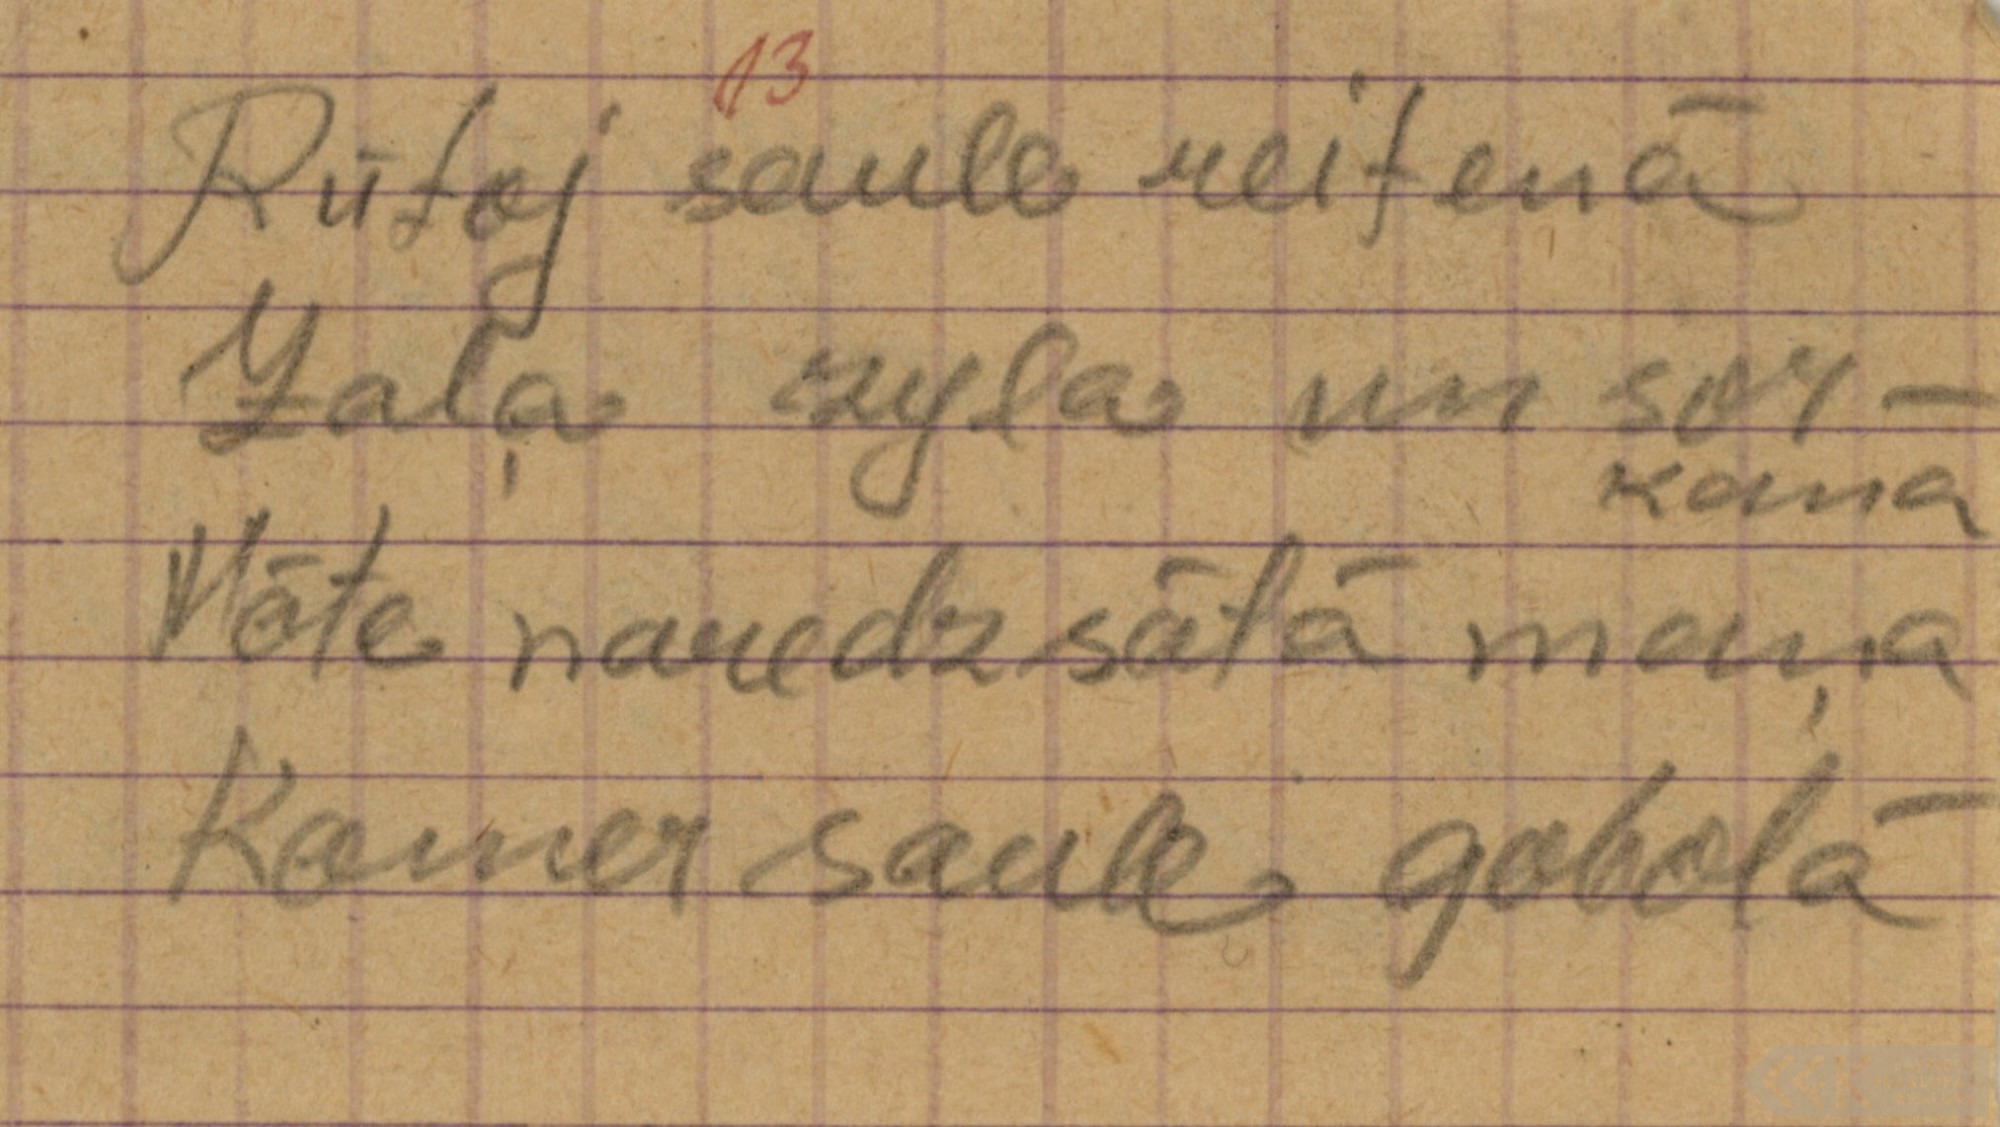 13
Rūtoj saule reitenā
Zaļa zyla un sor-
kana
Mōte naredz sātā maņa
Kamer saule gobolā